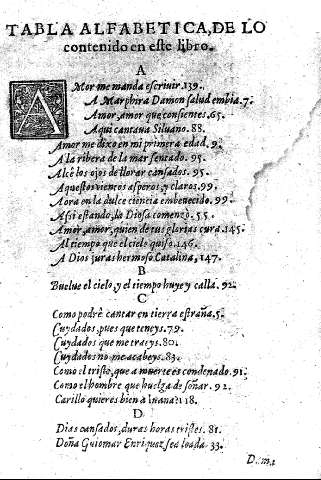 TABLA ALFABETICA, DE LO
contenido en este libro.
A
AMor me manda escriuir. 139.
A Marphira Damon salud embia. 7.
Amor, amor que consientes. 65.
Aqui cantaua Siluano. 88.
Amor me dixo en mi primera edad. 9.
A la ribera de la mar sentado. 95.
Alcè los ojos de llorar cansados. 95.
Aquestos vientos asperos, y claros. 99.
Aora en la dulce ciencia embeuecido. 99.
Assi estando, la Diosa comenzò. 55.
Amor, amor, quien de tus glorias cura. 145.
Al tiempo que el cielo quiso. 146.
A Dios juras hermoso Catalina, 147.
B
Buelue el cielo, y el tiempo huye y calla. 92.
C
Como podrè cantar en tierra estraña. 5.
Cuydados, pues que teneys. 79.
Cuydados que me traeys. 80.
Cuydados no me acabeys. 83.
Como el triste, que a muerte es condenado. 91.
Como el hombre que huelga de soñar. 92.
Carillo quieres bien a Iuana? 118.
D
Dias cansados, duras horas tristes. 81.
Doña Guiomar Enriquez sea loada. 33.